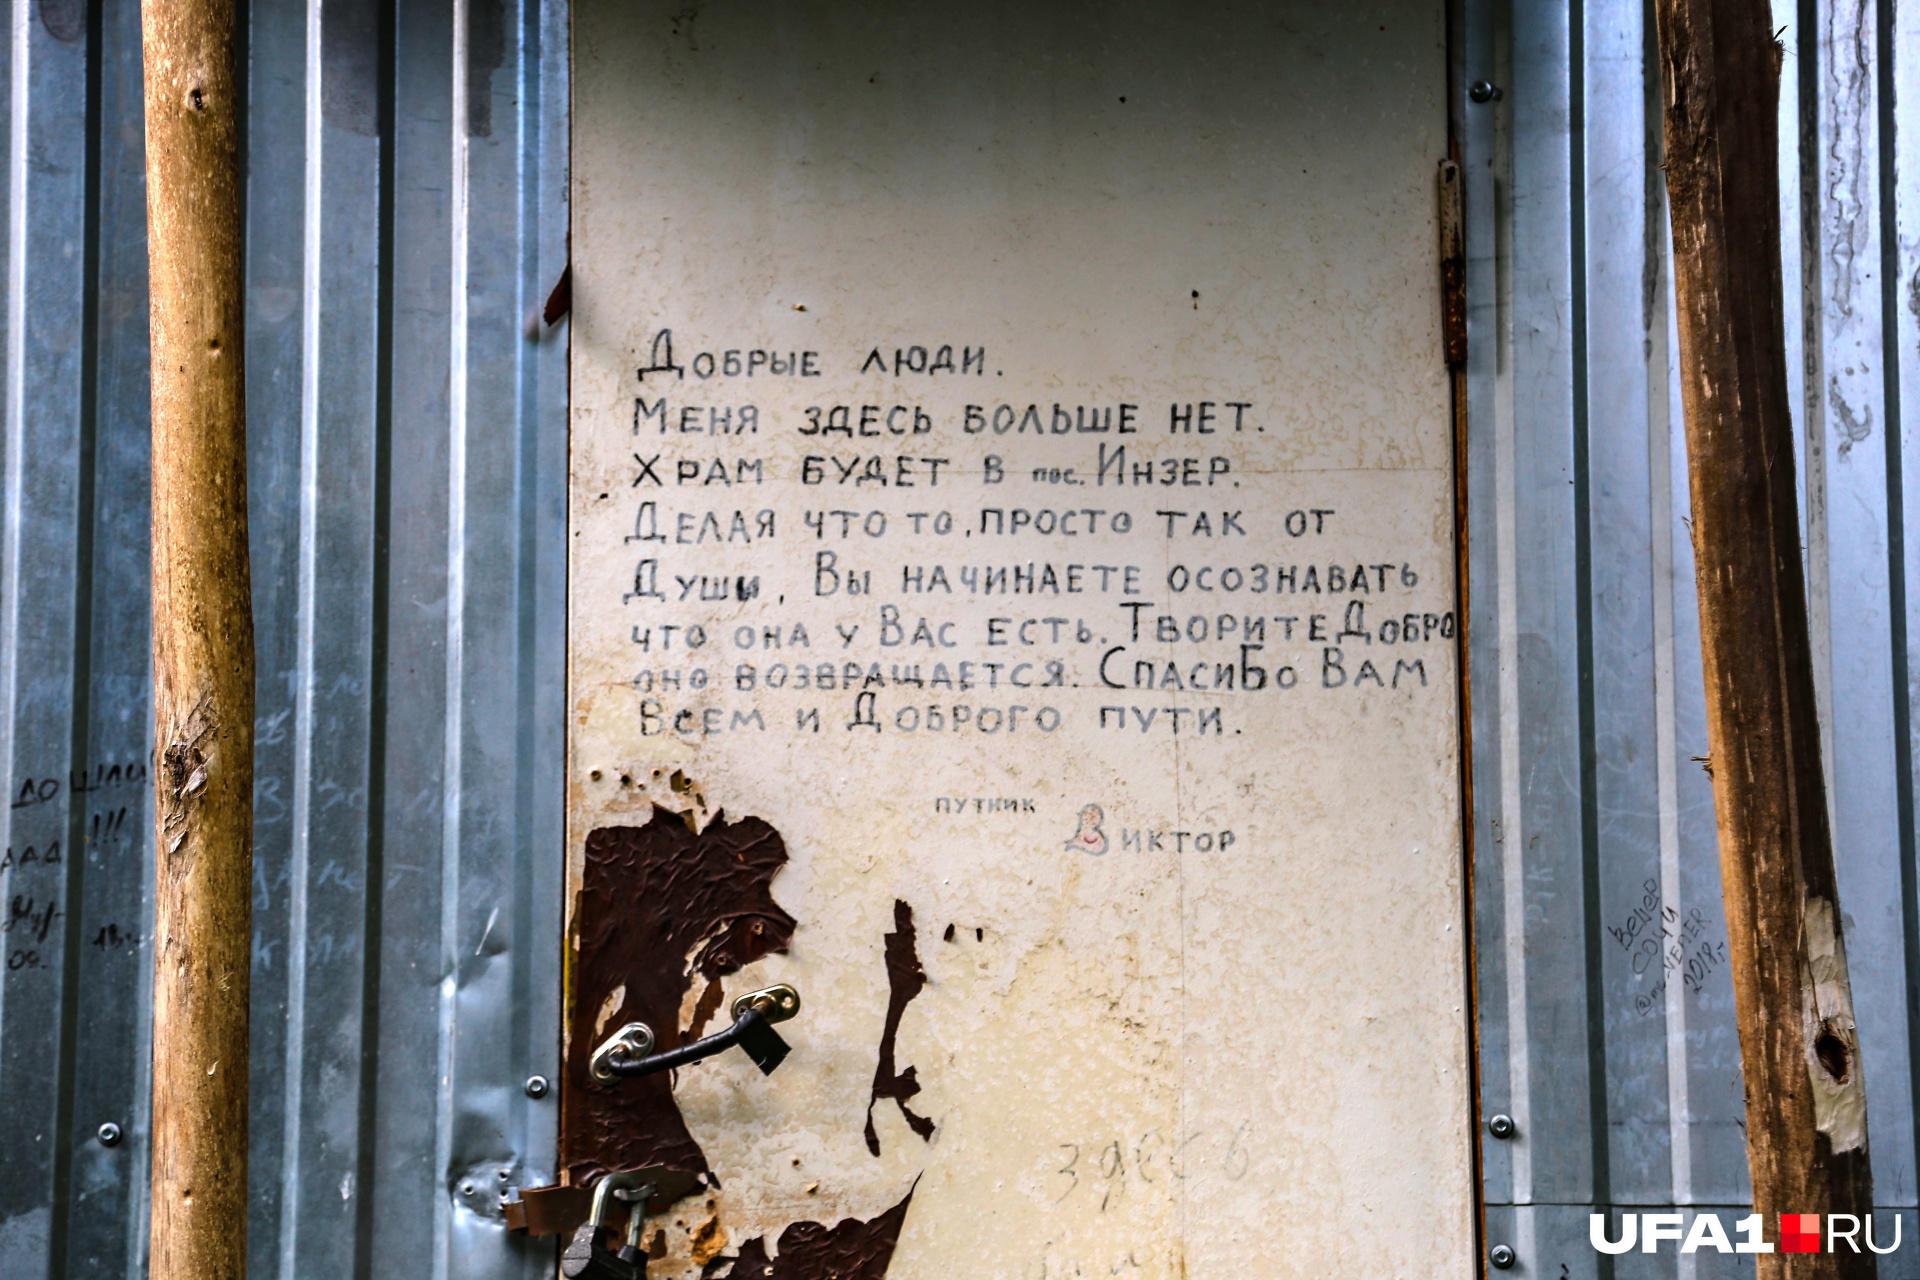 Добрые люди.
Меня здесь больше нет.
Храм будет в пос. Инзер.
Делая что то, просто так от
Души, Вы начинаете осознавать
что она у Вас есть. Творите Добро
оно возвращается. Спасибо Вам
Всем и Доброго пути.
путник
Виктор
здесь
ДОШЛИ
!!!
СОЧИ
2018г
UFA1.RU